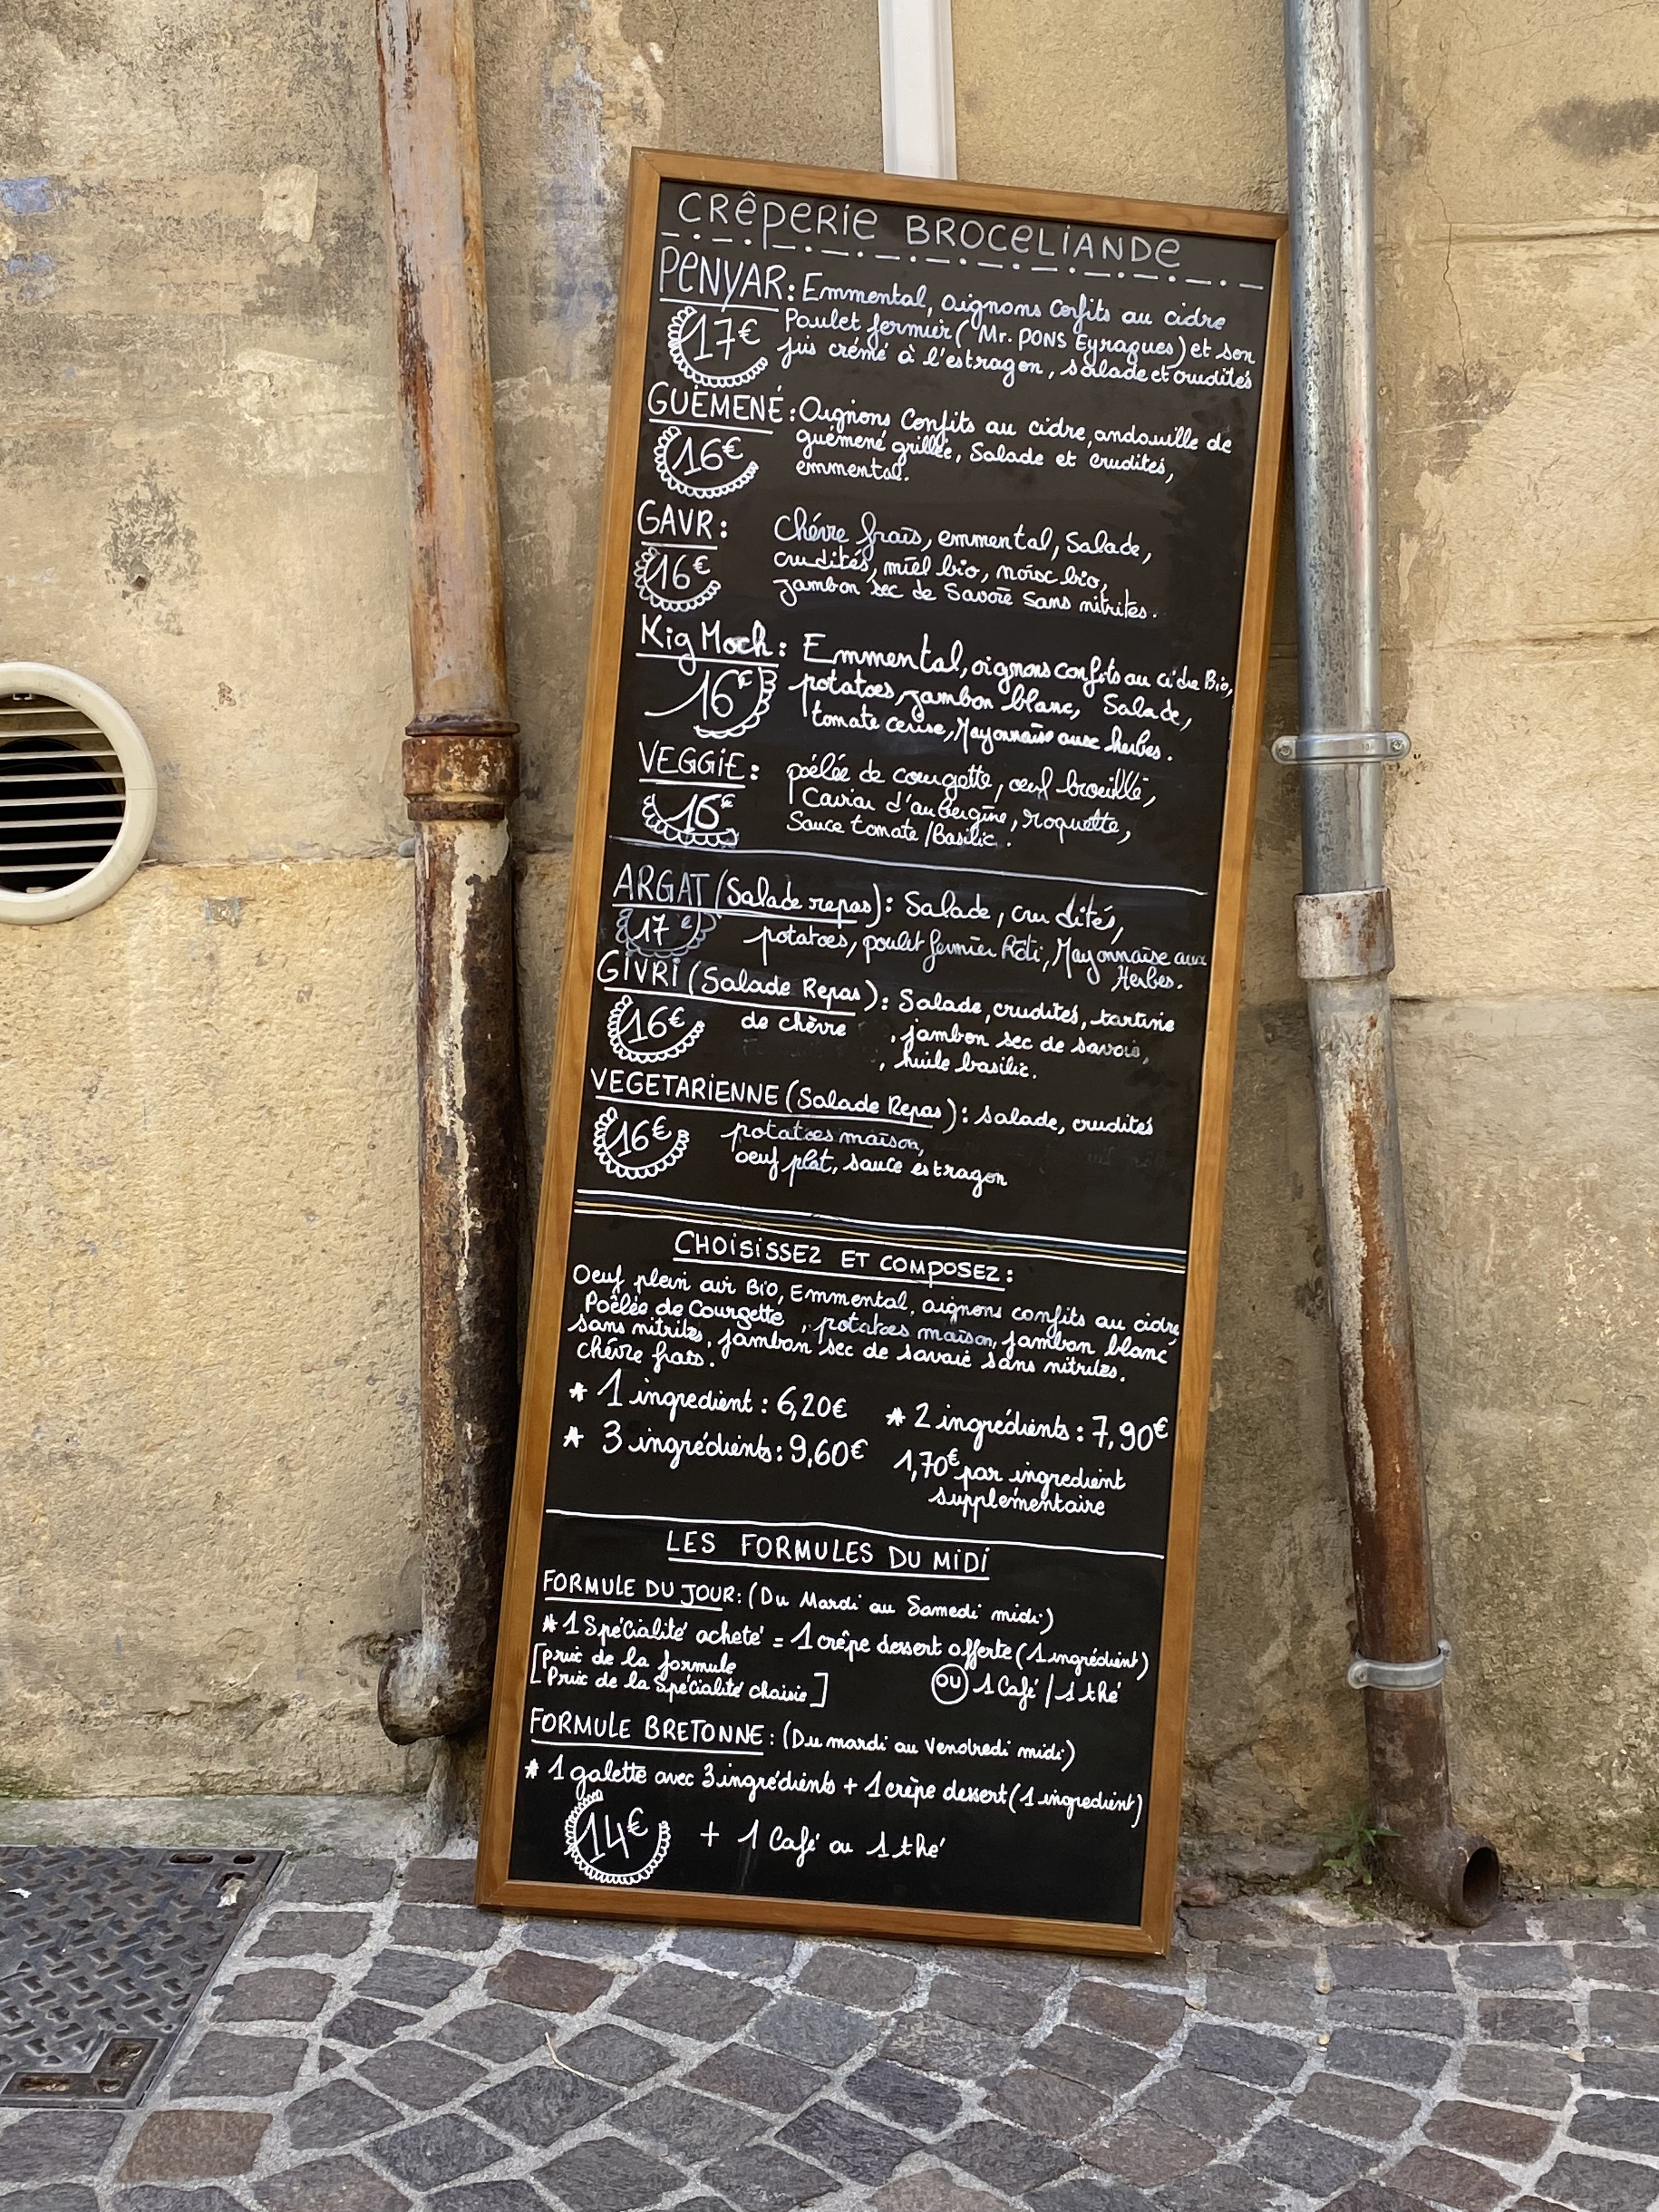 CRÊPERIE BROCELIANDE
PENYAR: Emmental, oignons confits au cidre
17€ Poulet fermier (Mr. PONS Eyragues) et son
jus crémé à l'estragon, salade et crudités
GUÉMENÉ: Oignons Confits au cidre, andouille de
16€ guémené grillée, Salade et crudités,
emmental.
GAVR: Chévre frais, emmental, Salade,
16€ crudités, miel bio, noix bio,
jambon sec de Savoie Sans nitrites.
Kig Moch: Emmental, oignons confits au cidre Bio,
16€ potatoes, jambon blanc, Salade,
tomate cerise, Mayonnaise aux herbes.
VEGGIE: poêlée de courgette, œuf brouillé,
16€ Caviar d'aubergine, roquette,
Sauce tomate / Basilic.
ARGAT (Salade repas): Salade, crudités,
17€ potatoes, poulet fermier Rôti, Mayonnaise aux
Herbes.
GIVRI (Salade Repas): Salade, crudités, tartine
16€ de chèvre, jambon sec de savoie,
, huile basilic.
VEGETARIENNE (Salade Repas): Salade, crudités
16€ potatoes maison,
oeuf plat, sauce estragon
CHOISISSEZ ET COMPOSEZ:
Oeuf plein air Bio, Emmental, oignons confits au cidre
Poêlée de Courgette, potatoes maison, jambon blanc
sans nitrites, jambon sec de savoie sans nitrites.
chévre frais.
* 1 ingredient : 6,20€ * 2 ingrédients : 7,90€
* 3 ingrédients : 9,60€ 1,70€ par ingredient
supplémentaire
LES FORMULES DU MIDI
FORMULE DU JOUR: (Du Mardi au Samedi midi)
* 1 Spécialité acheté = 1 crêpe dessert offerte (1 ingrédient)
[prix de la formule OU 1 Café / 1 thé
Prix de la Spécialité choisie]
FORMULE BRETONNE: (Du mardi au Vendredi midi)
* 1 galette avec 3 ingrédients + 1 crêpe dessert (1 ingredient)
14€ + 1 Café ou 1 thé